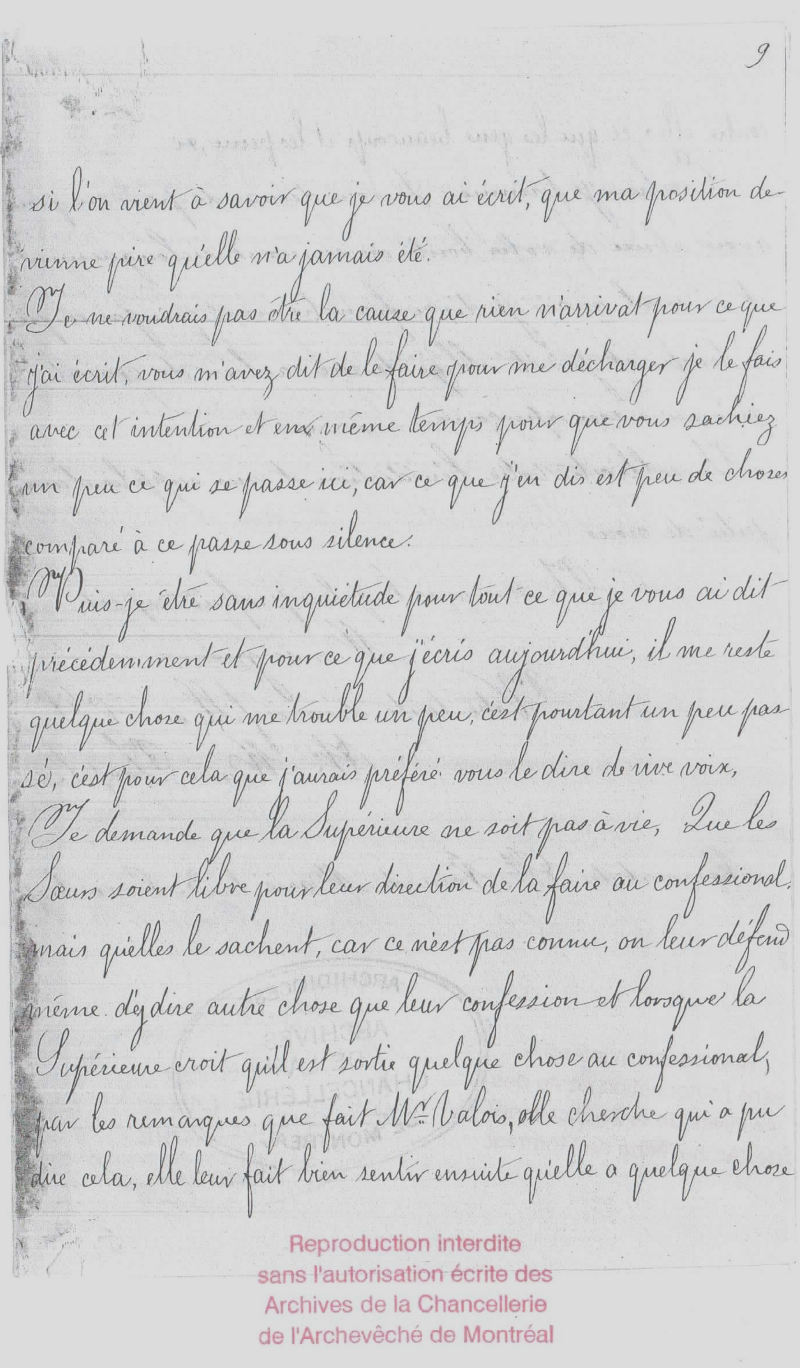 9
si l'on vient à savoir que je vous ai écrit, que ma position de-
vienne pire qu'elle n'a jamais été.
Je ne voudrais pas être la cause que rien n'arrivat pour ce que
j'ai écrit, vous m'avez dit de le faire pour me décharger je le fais
avec cet intention et en même temps pour que vous sachiez
un peu ce qui se passe ici, car ce que j'en dis est peu de choses
comparé à ce passe sous silence.
Puis-je être sans inquiétude pour tout ce que je vous ai dit
précédemment et pour ce que j'écris aujourd'hui, il me reste
quelque chose qui me trouble un peu, c'est pourtant un peu pas-
sé, c'est pour cela que j'aurais préféré vous le dire de vive voix,
Je demande que la Supérieure ne soit pas à vie, Que les
Sœurs soient libre pour leur direction de la faire au confessional,
mais qu'elles le sachent, car ce n'est pas connu, on leur défend
même d'y dire autre chose que leur confession et lorsque la
Supérieure croit qu'il est sortie quelque chose au confessional,
par les remarques que fait Mr. Valois, elle cherche qui a pu
dire cela, elle leur fait bien sentir ensuite qu'elle a quelque chose
Reproduction interdite
sans l'autorisation écrite des
Archives de la Chancellerie
de l'Archevêché de Montréal